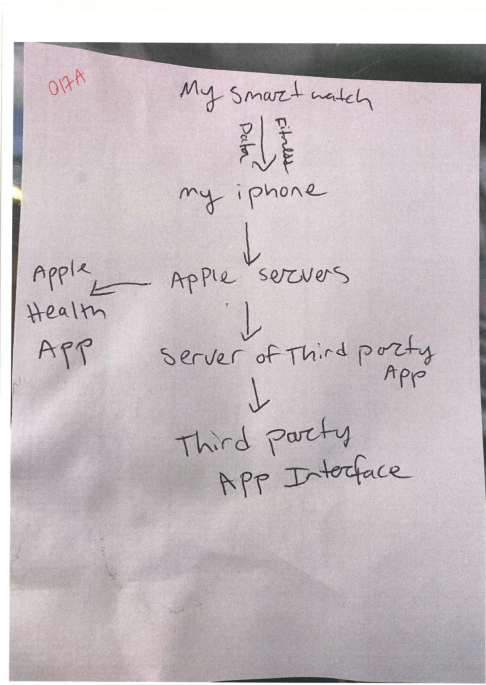 017A
My smartwatch
Fitness
Data
my iphone
Apple servers
Apple
Health
APP
Server of Third party
App
Third party
APP Interface